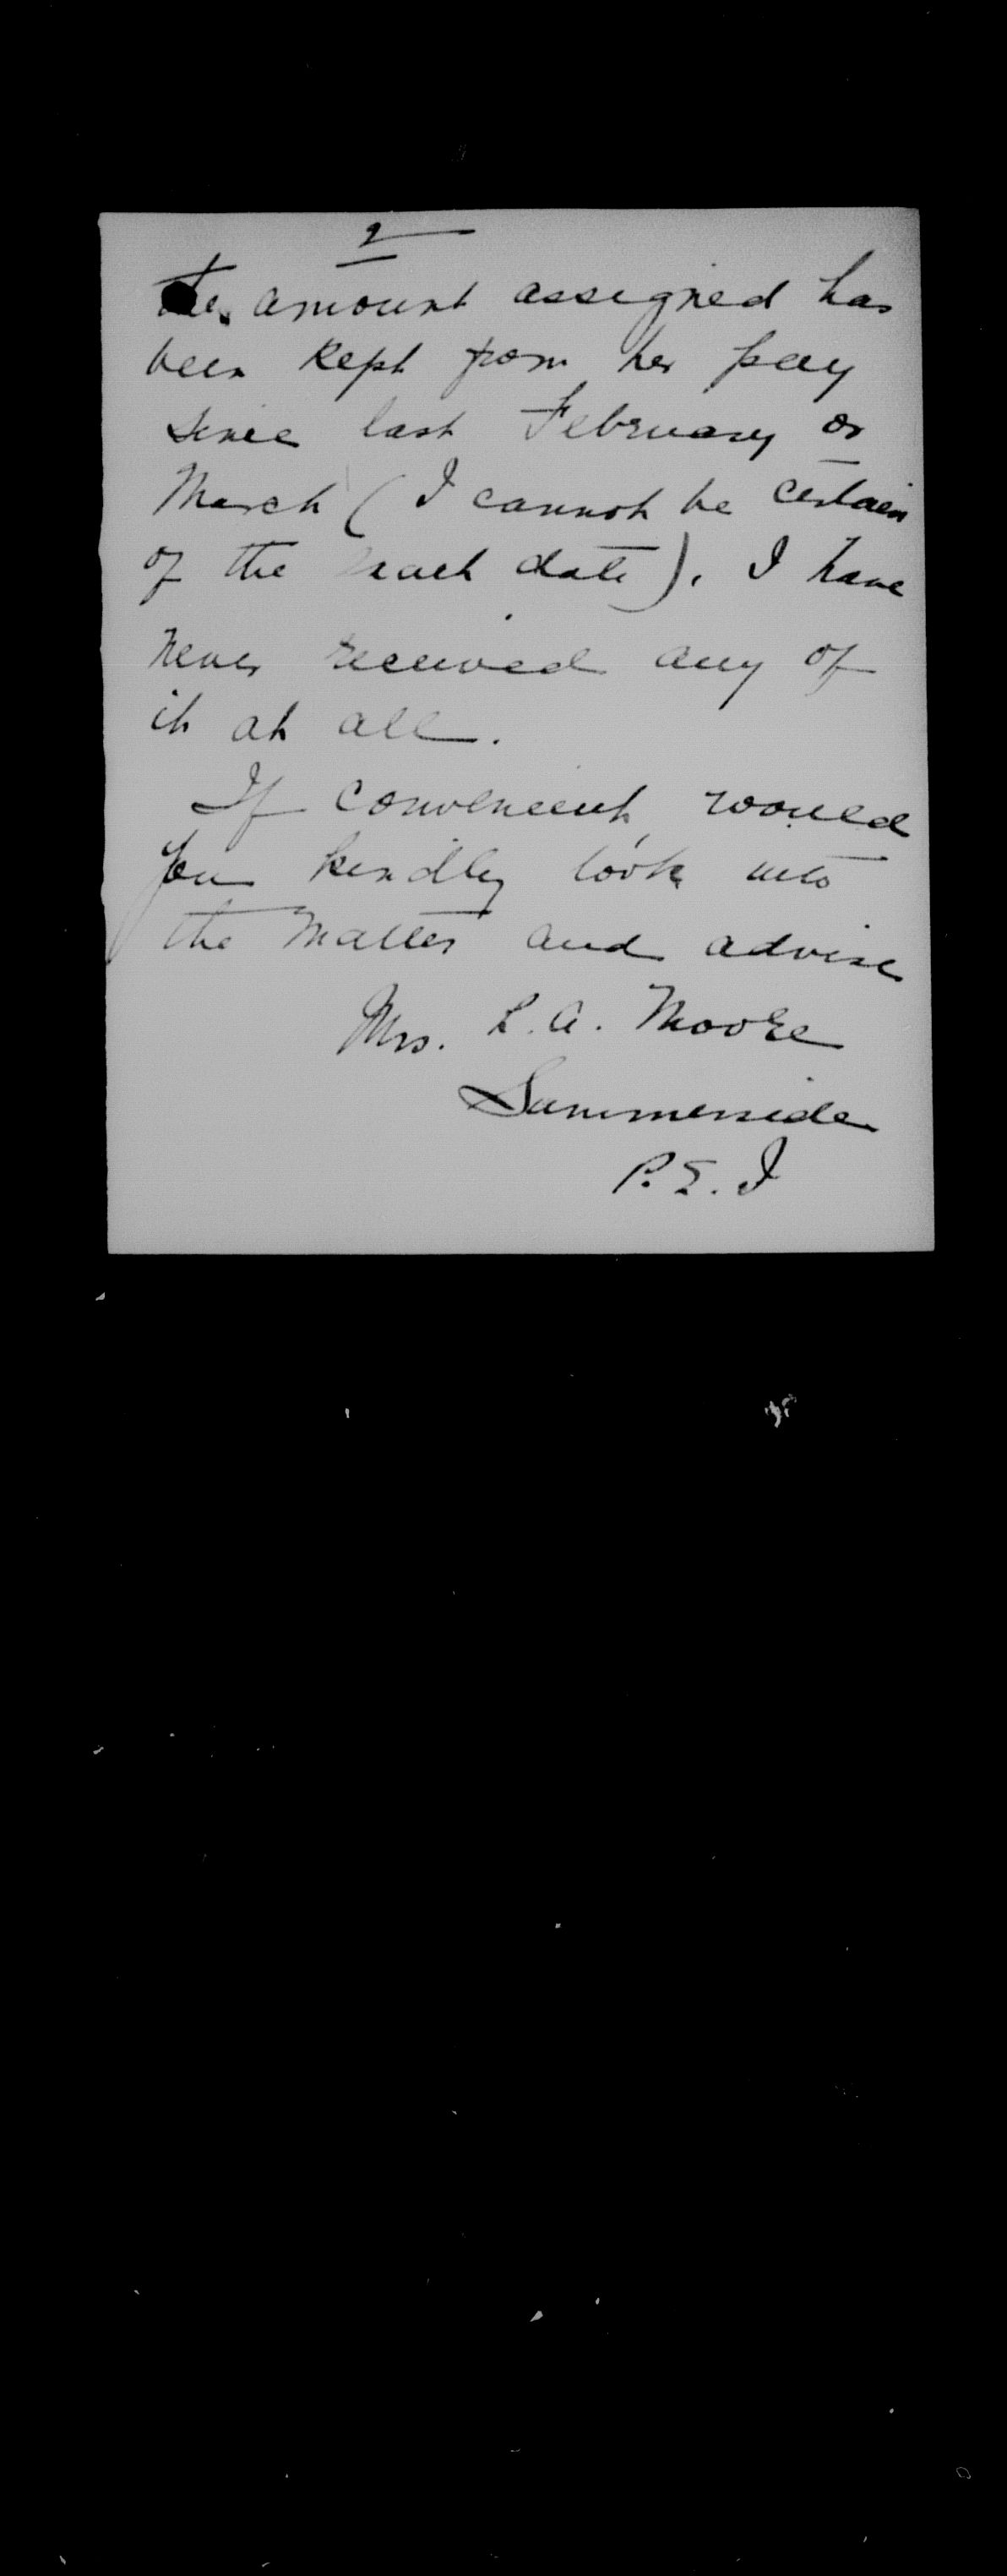 2
the amount assigned has
been kept from her pay
since last February or
March (I cannot be certain
of the exact date). I have
never received any of
it at all.
If convenient, would
you kindly look into
the matter and advise
Mrs. L. A. Moore
Summerside
P. E. I